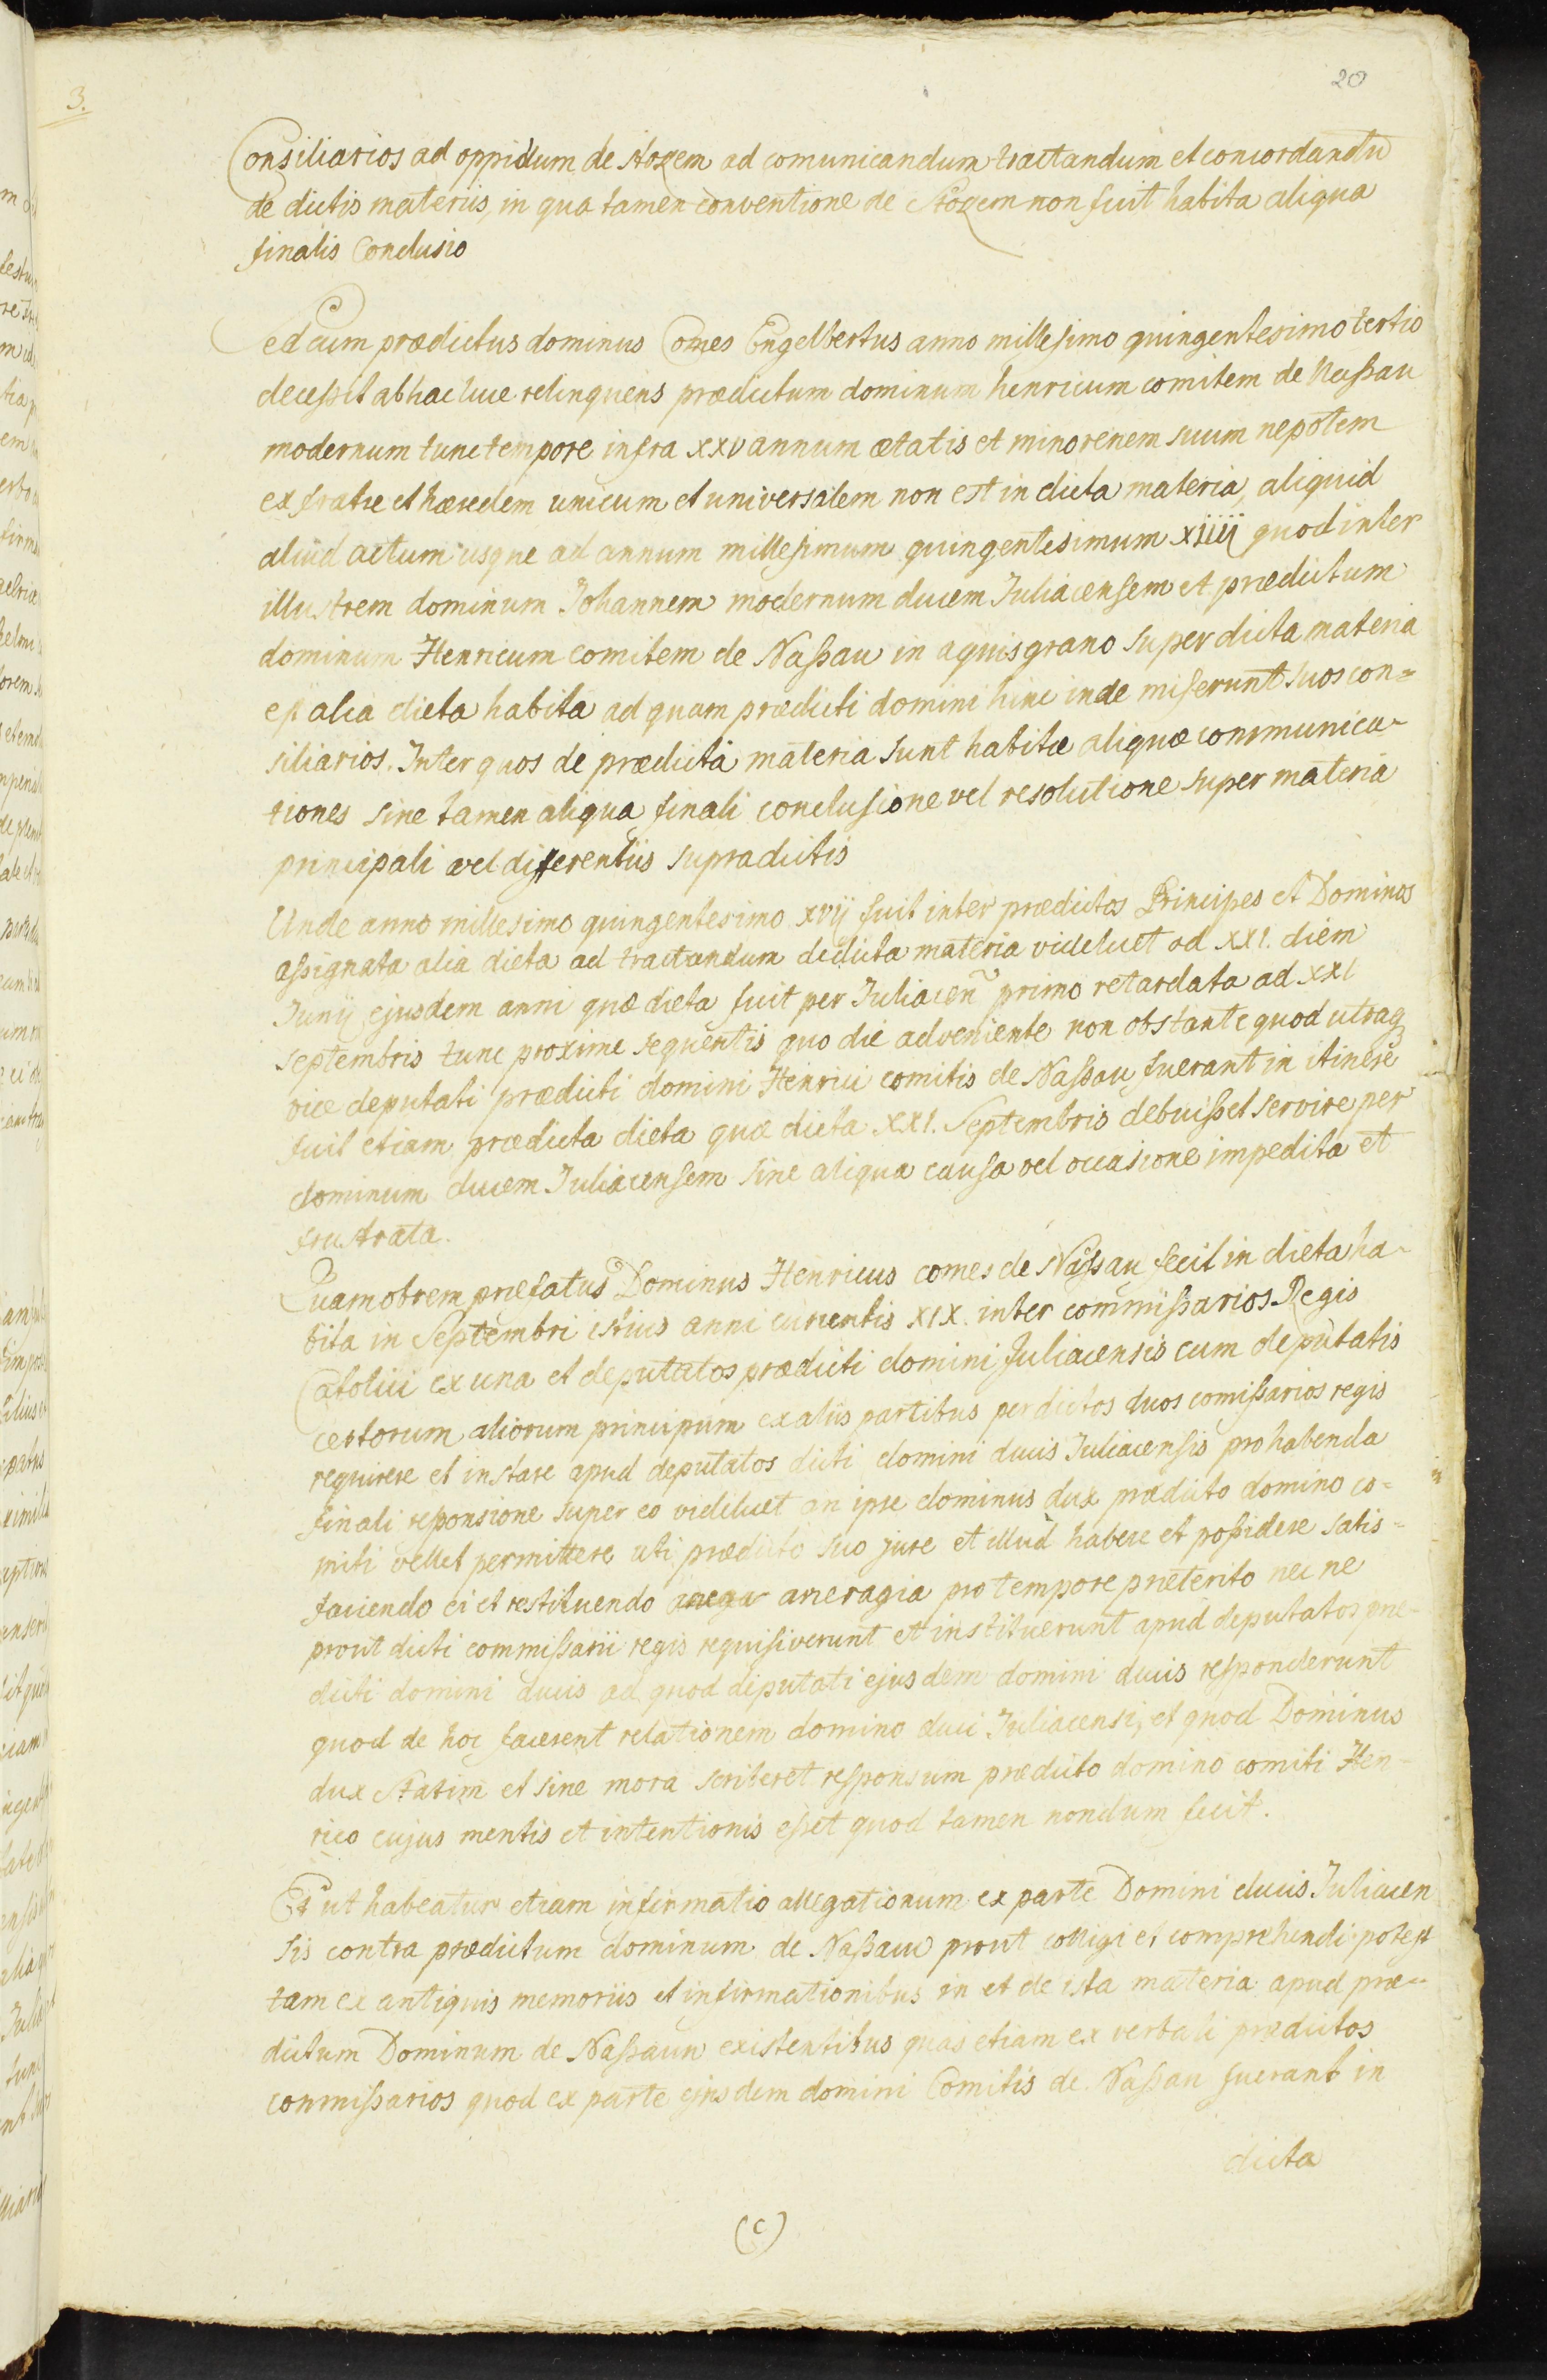 3.
20
Consiliarios ad oppidum de Stogem ad comunicandum tractandum et concordandū
de dictis materiis, in qua tamen conventione de Stogem non fuit habita aliqua
finalis Conclusio
Sed cum prædictus dominus Comes Engelbertus anno millesimo quingentesimo tertio
decessit ab hac luce relinquens prædictum dominum henricum comitem de Nassau
modernum tunc tempore infra xxv annum ætatis et minorenem suum nepotem
ex fratre et hæredem unicum et universalem non est in dicta materia aliquid
aliud actum usque ad annum millesimum quingentesimum xiiij quod inter
illustrem dominum Johannem modernum ducem Juliacensem et prædictum
dominum Henricum comitem de Nassau in aquisgrano super dicta materia
est alia dieta habita ad quam prædicti domini hinc inde miserunt suos con=
siliarios. Inter quos de prædicta materia sunt habitæ aliquæ communica-
tiones sine tamen aliqua finali conclusione vel resolutione super materia
principali vel differentiis supradictis
Unde anno millesimo quingentesimo xvij fuit inter prædictos Principes et Dominos
assignata alia dieta ad tractandum de dicta materia videlicet ad XXI. diem
Junij ejusdem anni quæ dieta fuit per Juliacen~ primo retardata ad xxi
septembris tunc proxime sequentis quo die adveniente non obstante quod utraq
vice deputati prædicti domini Henrici comitis de Nassau fuerant in itinere
fuit etiam prædicta dieta quæ dicta XXI. Septembris debuisset servire per
dominum ducem Juliacensem sine aliqua causa vel occasione impedita et
frustrata.
Quamobrem præfatus Dominus Henricus comes de Nassau fecit in dieta ha-
bita in Septembri istius anni currentis XIX. inter commissarios Regis
Catolici ex una et deputatos prædicti domini Juliacensis cum deputatis
certorum aliorum principum ex aliis partibus per dictos duos comissarios regis
requirere et instare apud deputatos dicti domini ducis Juliacensis pro habenda
finali responsione super eo videlicet an ipse dominus dux prædicto domino co=
miti vellet permittere uti prædicto suo jure et illud habere et possidere satis=
faciendo ei et restituendo arreragia pro tempore præterito nec ne
prout dicti commissarii regis requisiverunt et instituerunt apud deputatos præ-
dicti domini ducis ad quod deputati ejusdem domini ducis responderunt
quod de hoc facerent relationem domino duci Juliacensi, et quod Dominus
dux Statim et sine mora scriberet responsum prædicto domino comiti Hen-
rico cujus mentis et intentionis esset quod tamen nondum fecit.
Et ut habeatur etiam informatio allegationum ex parte Domini ducis Juliacen
sis contra prædictum dominum de Nassau prout colligi et comprehendi potest
tam ex antiquis memoriis et informationibus in et de ista materia apud præ-
dictum Dominum de Nassaun existentibus quas etiam ex verbali prædictos
commissarios quod ex parte ejusdem domini Comitis de Nassau fuerant in
dicta
(c)